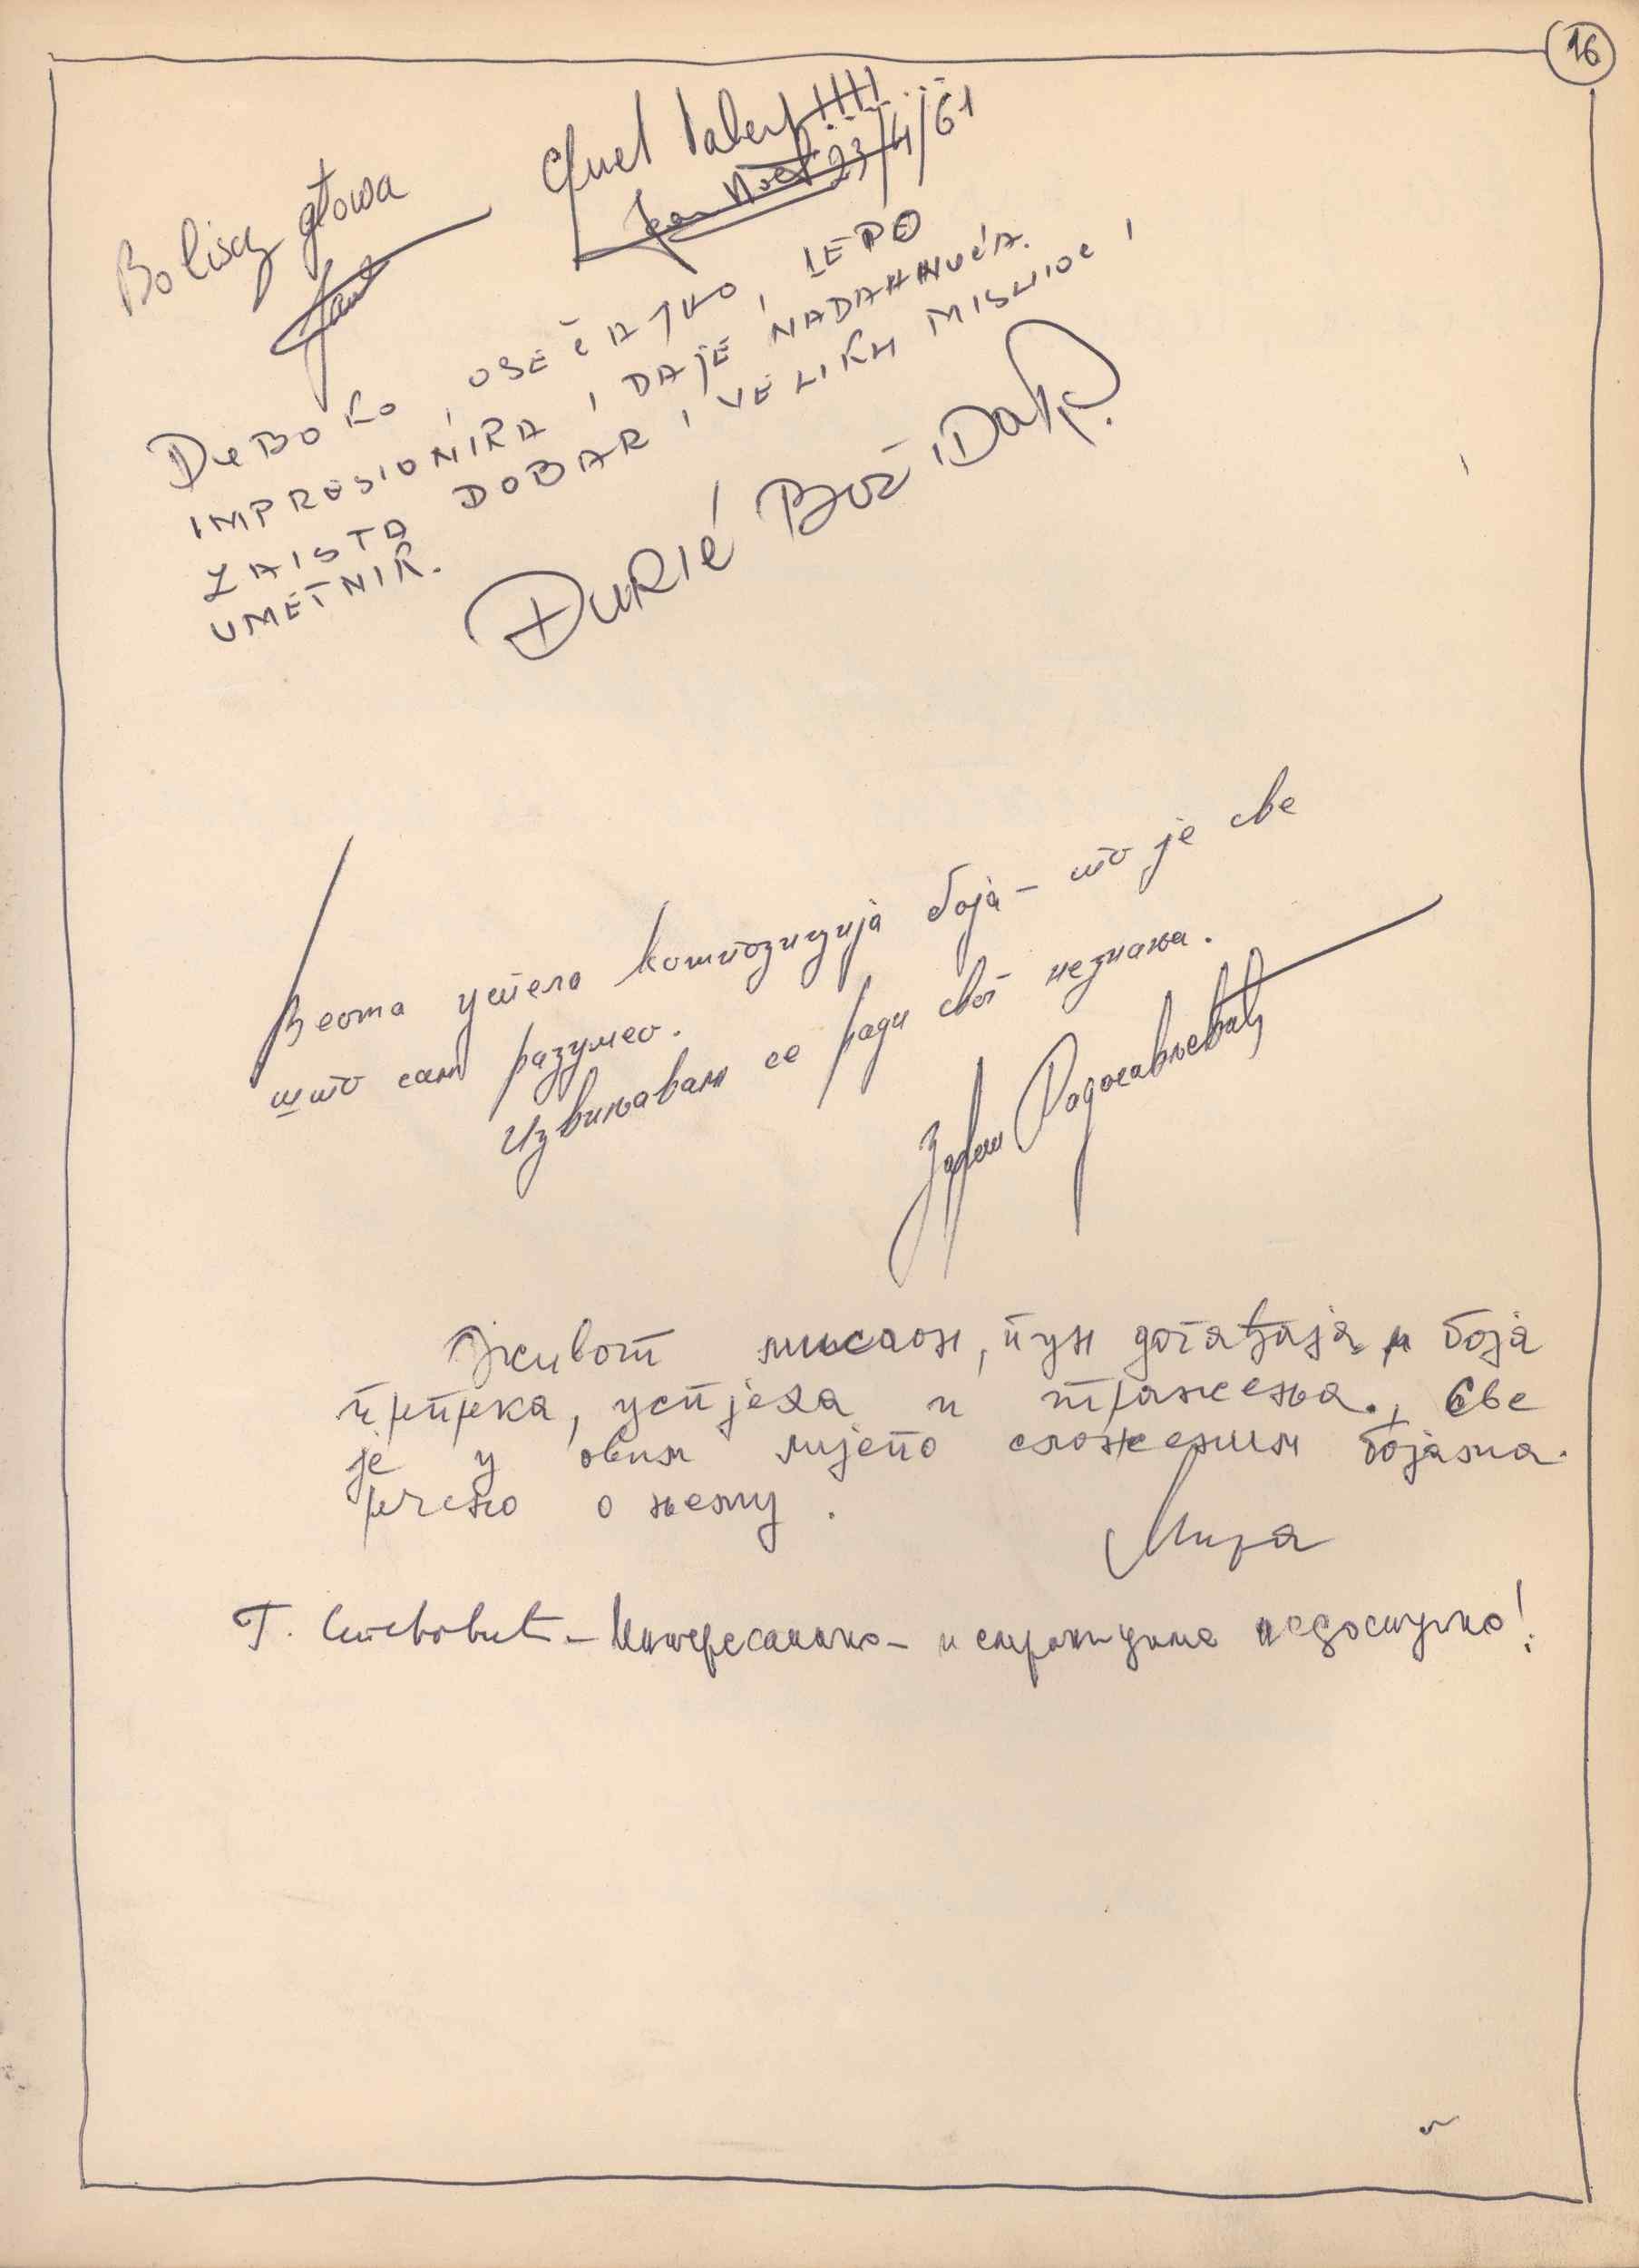 16
Boliscy głowa
Quel talent!!!!
Jean Noel 23/4/61
DUBOKO, OSEĆAJNO, LEPO
IMPRESIONIRA, DAJE NADAHNUĆA.
ZAISTA DOBAR, VELIKI MISLIOC I
UMETNIK.
ĐURIĆ BOŽIDAR
Веома успела композиција боја – то је све
што сам разумео.
Извињавам се ради свог незнања.
Радосављевић
Живот мисаон, пун догађаја и боја
препрека, успјеха и тражења., Све
је у овим лијепо сложеним бојама
речено о њему.
Мира
Г. Стевовић – Интересантно – и недоступно!